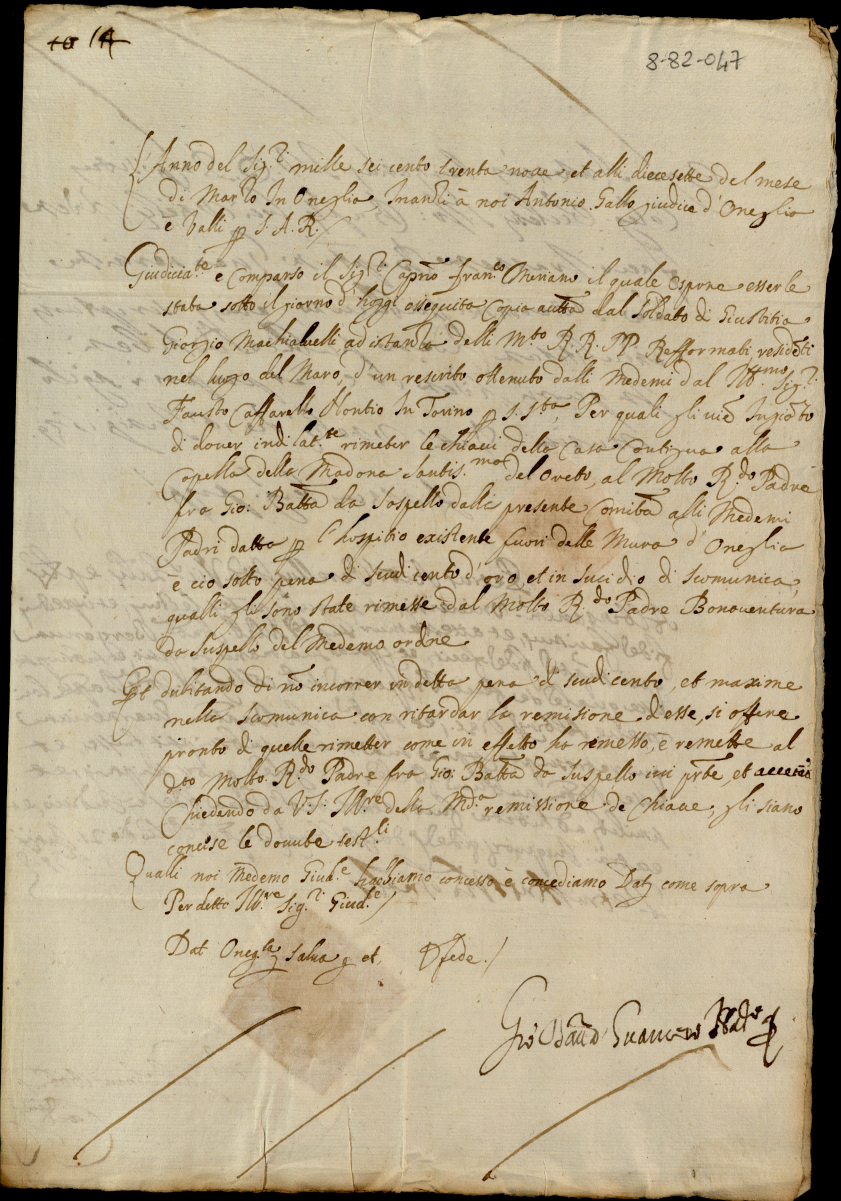 8-82-047
Anno del Sig.r mille sei cento trenta noue, et alli diecesette del mese
di Marzo In Oneglia, Inanzi à noi Antonio Gallo giudice d'Oneglia
e Valli p S. A. R./
Giudicia.te e comparso il Sig.r Fran.co il quale espone esserle
stata sotto il giorno d'hoggi esseguita Copia autta dal soldato di Giustitia
Giorgio Machiauelli ad istanza delli M.to R. R. PP. Refformati, residēti
nel luogo del Maro, d'un rescrito ottenuto dalli Medemi dal Ill.mo Sig.r
Fausto Caffarello Nontio In Torino p S. S.ta, Per quali gli uiē Ingiōto
di douer indilat.te rimeter le chiaui della Casa Contigua alla
Capella della Madona Santis.ma del Oreto, al Molto R.do Padre
fra Gio: Batta da Sospello dalli presente Comūta alli Medemi
Padri datta p l'hospitio existente fuori delle Mura d'Oneglia
e cio sotto pena di scudi cento d'oro, et in sucidio di scomunica,
qualli gli sono state rimesse dal Molto R.do Padre Bonauentura
da Suspello del Medemo ordne
Et dubitando di nō incorrer in detta pena d' scudi cento, et maxime
nella scomunica con ritardar la remisione d'esse, si offere
pronto di quelle rimetter come in effetto ha remesso, è remette al
d.to Molto R.do Padre fra Gio: Batta da Suspello iui prāte, et
Chiedendo da V. S. Ill.re della remissione de Chiaue, gli siano
concesse le douute test.li
Qualli noi Medemo Giud.e habbiamo concesso è concediamo Dat come sopra
Per detto Ill.re Sig.r Giud.e/
Dat Oneg.la salua et. fede./